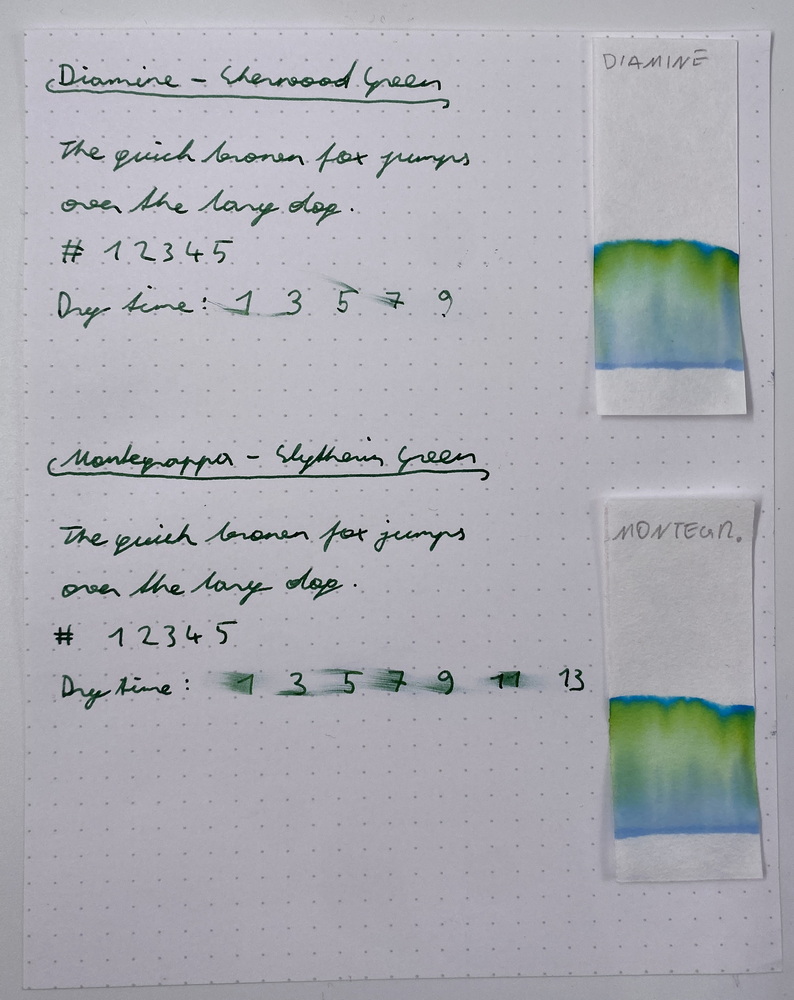 Diamine - Sherwood Green
DIAMINE
The quick brown fox jumps
over the lazy dog.
# 1 2 3 4 5
Dry time: 1 3 5 7 9
Montegrappa - Slytherin Green
MONTEGR.
The quick brown fox jumps
over the lazy dog.
# 1 2 3 4 5
Dry time: 1 3 5 7 9 11 13